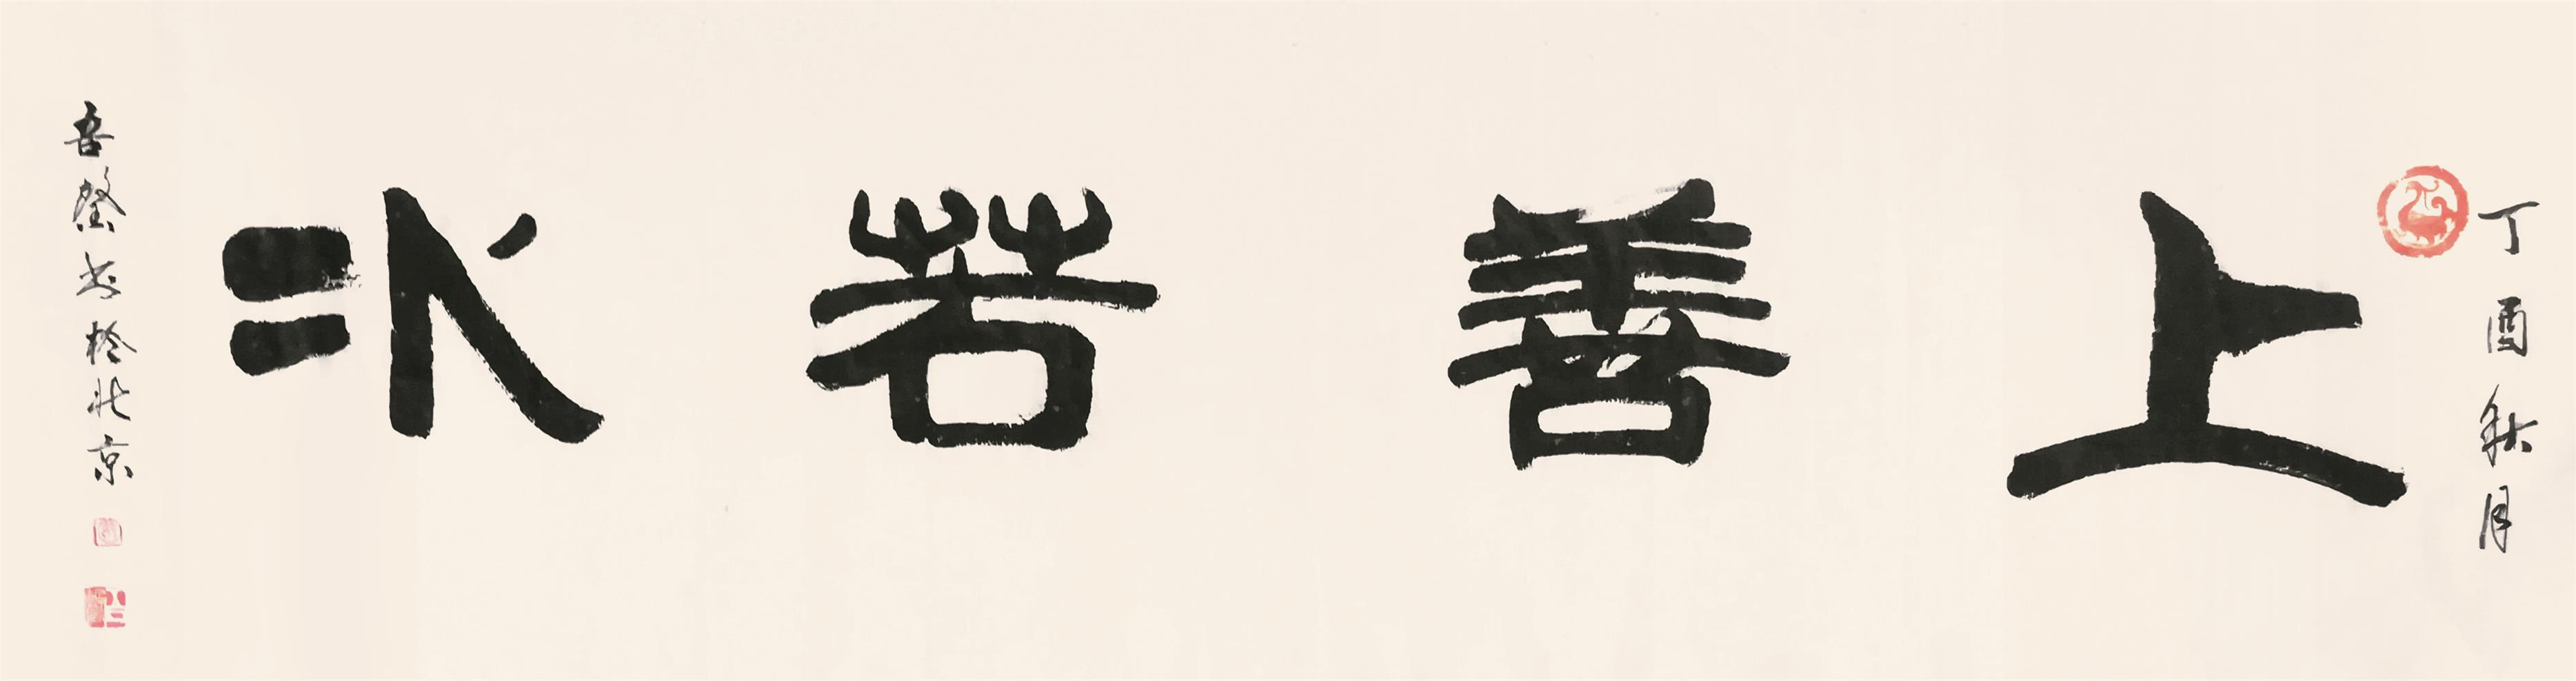 丁酉秋月
上善若水
吾瑩书於北京